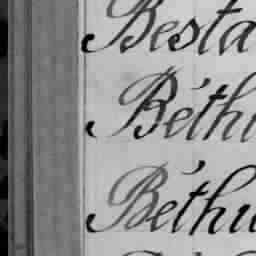 Besta
Béthu
Béthu